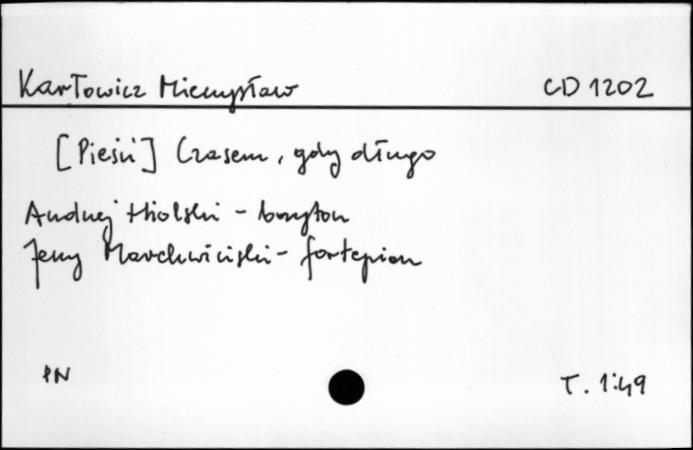 Karłowicz Mieczysław CD 1202
[Pieśń] Czasem, gdy długo
Andrzej Hiolski - baryton
Jerzy Marchwiński - fortepian
PN T. 1:49